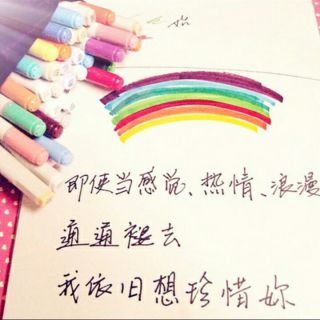 即使当感觉、热情、浪漫
通通褪去
我依旧想珍惜妳